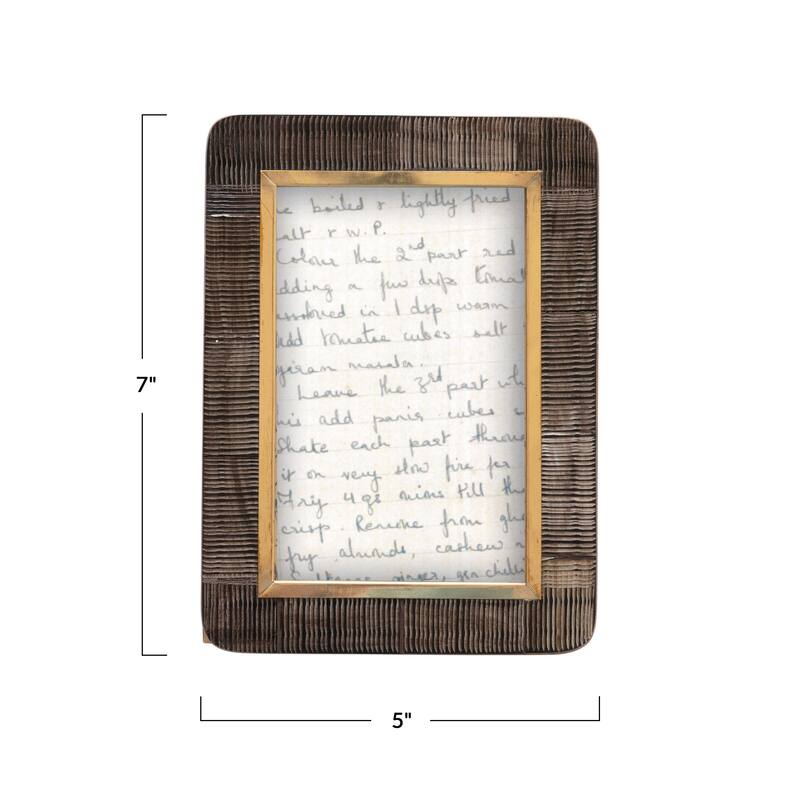 boiled & lightly fried
alt & W.P.
Colour the 2nd part red
dding a few drops tomat
in 1 dsp warm
add tomatoe cubes salt
garam masala.
Leave the 3rd part wh
his add panir cubes s
Shake each part throug
it on very slow fire for
Fry 4 onions till the
crisp. Remove from ghe
fry almonds, cashew n
ginger, grn chilli
7"
5"